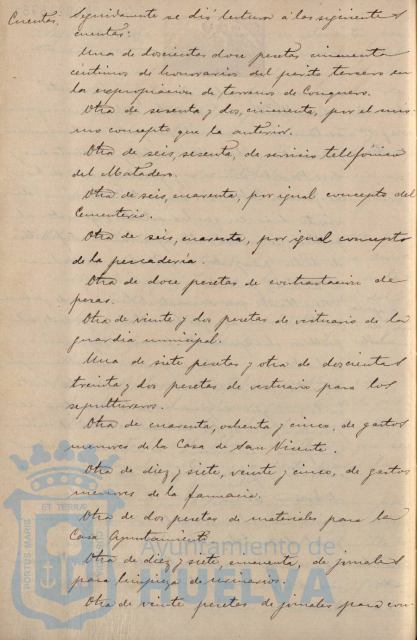 Cuentas. Seguidamente se dió lectura á las siguientes
cuentas:
Una de doscientas doce pesetas cincuenta
céntimos de honorarios del perito tercero en
la expropiación de terrenos de Conquero.
Otra de sesenta y dos, cincuenta, por el mis-
mo concepto que la anterior.
Otra de seis, sesenta, de servicio telefónico
del Matadero.
Otra de seis, cuarenta, por igual concepto del
Cementerio.
Otra de seis, cuarenta, por igual concepto
de la pescadería.
Otra de doce pesetas de contrastacion de
pesas.
Otra de veinte y dos pesetas de vestuario de la
guardia municipal.
Una de siete pesetas y otra de doscientas
treinta y dos pesetas de vestuario para los
sepultureros.
Otra de cuarenta, ochenta y cinco, de gastos
menores de la Casa de San Vicente.
Otra de diez y siete, veinte y cinco, de gastos
menores de la farmacia.
Otra de dos pesetas de materiales para la
Casa Ayuntamiento.
Otra de diez y siete, cincuenta, de jornales
para limpieza de urinarios.
Otra de veinte pesetas de jornales para con
PORTUS MARIS
ET TERRAE
Ayuntamiento de
HUELVA